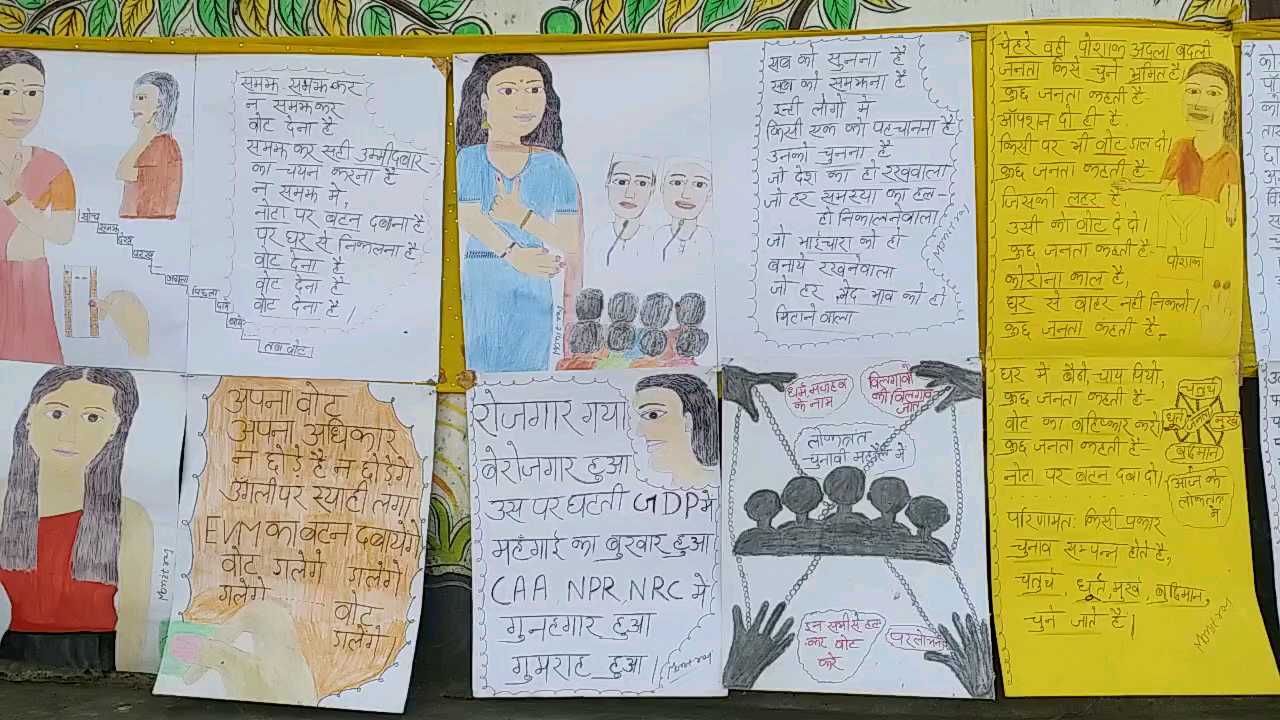 समझ समझ कर
न समझ कर
वोट देना है
समझ कर सही उम्मीदवार -
का चयन करना है
न समझ में,
नोटा पर बटन दबाना है
पर घर से निकलना है
वोट देना है
वोट देना है
वोट देना है।
सोच
समझ
देख
परख
अगला
पिछला
तब वोट
सब को सुनना है
सब को समझना है
इन्ही लोगों में
किसी एक को पहचानना है
उनको चुनना है
जो देश का हो रखवाला
जो हर समस्या का हल
हो निकालनेवाला
जो भाईचारा को हो
बनाये रखनेवाला
जो हर भेद भाव को हो
मिटाने वाला
चेहरे वही पोशाक अदला बदली
जनता किसे चुने भ्रमित है
कुछ जनता कहती है-
ऑपशन दो ही है
किसी पर भी वोट डाल दो।
कुछ जनता कहती है-
जिसकी लहर है,
उसी को वोट दे दो।
कुछ जनता कहती है-
कोरोना काल है,
घर से बाहर नही निकलो।
कुछ जनता कहती है-
पोशाक
अपना वोट
अपना अधिकार
न छोड़े है न छोड़ेगे
उंगली पर स्याही लगा
EVM का बटन दबायेंगे
वोट गलेगे गलेगे
गलेगे ...... वोट
गलेगे
रोजगार गया
बेरोजगार हुआ
उस पर घटती GDP में
महंगाई का बुखार हुआ
CAA NPR, NRC में
गुनहगार हुआ
गुमराह हुआ।
धर्म मजहब
के नाम
विलगावों
की विलगाव
जाति
लोकतंत्र
चुनावी में
इन सभी से हल
कर वोट
करे
घर में बैठो, चाय पियो,
कुछ जनता कहती है-
वोट का बहिष्कार करो।
कुछ जनता कहती है-
नोटा पर बटन दबा दो।
परिणामत: किसी प्रकार
चुनाव सम्पन्न होते है,
चतुर्थ, धूर्त, मुर्ख, बुद्धिमान,
चुने जाते है।
चतुर्थ
धूर्त
जनता
मुर्ख
बुद्धिमान
आज के
लोकतंत्र
में